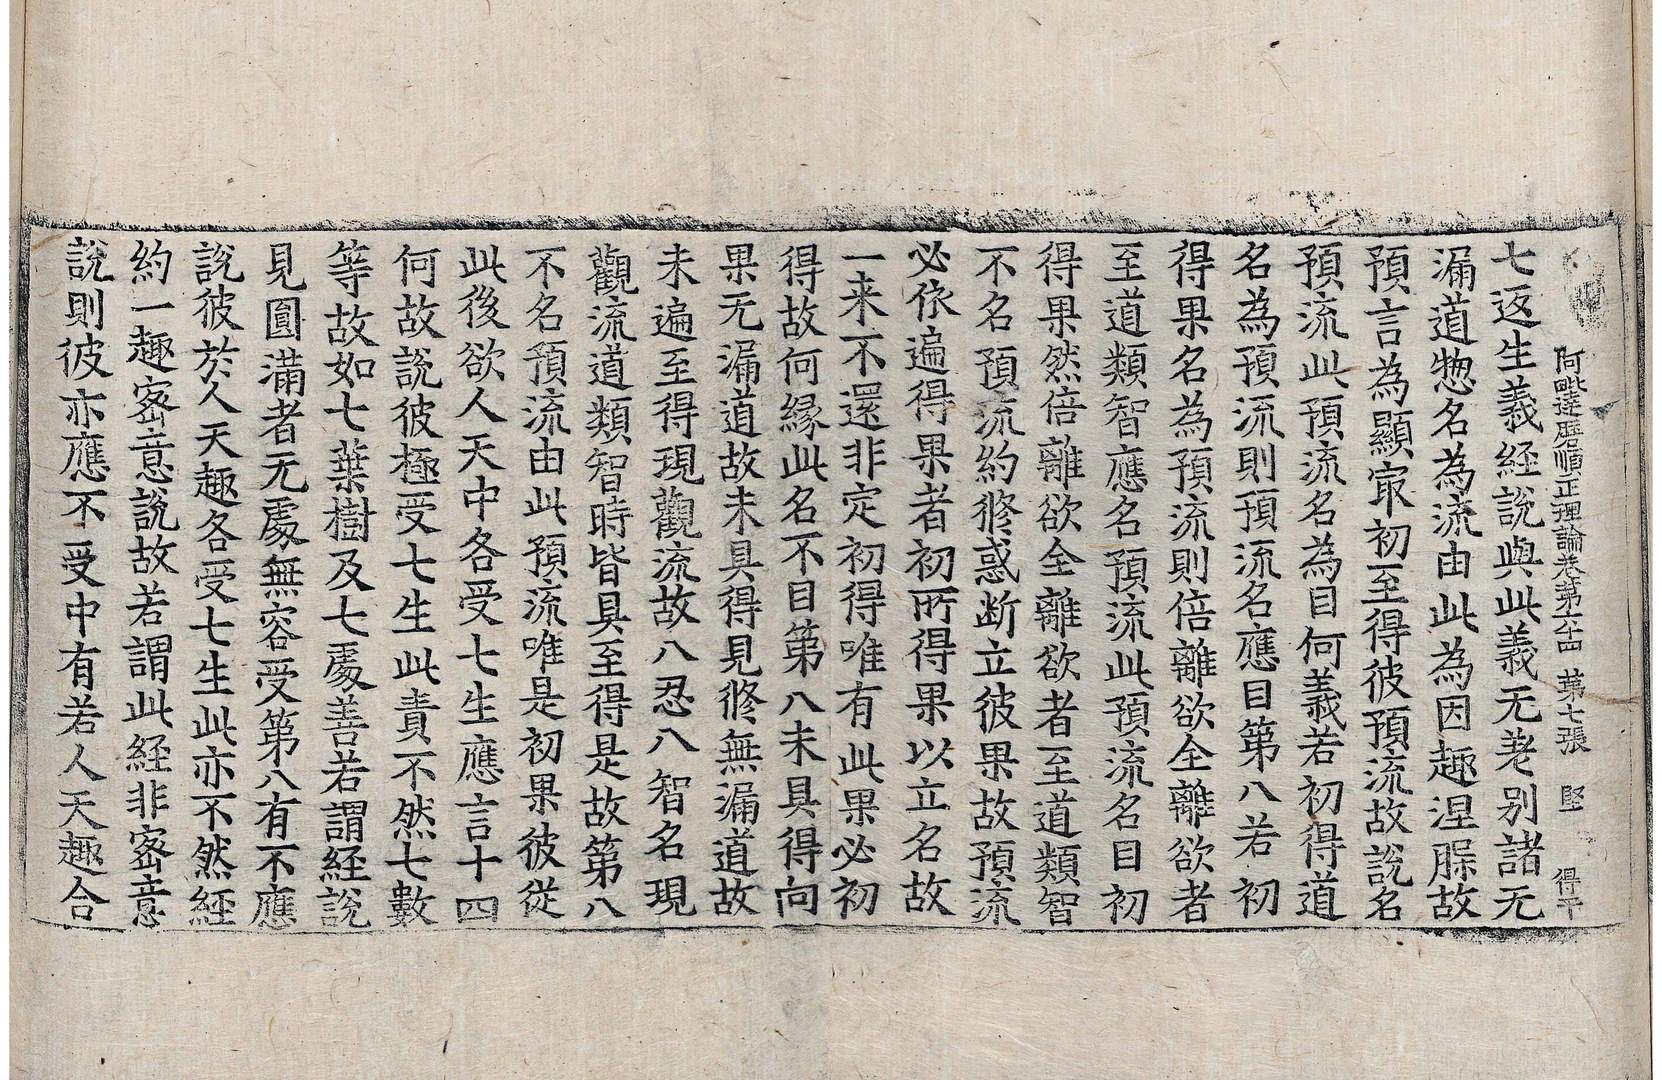 阿毗達磨順正理論卷第六十四 第七張 堅 得平
七返生義經說與此義无差别諸无
漏道惣名為流由此為因趣涅脲故
預言為顯㝡初至得彼預流故說名
預流此預流名為目何義若初得道
名為預流則預流名應目第八若初
得果名為預流則倍離欲全離欲者
至道類智應名預流此預流名目初
得果然倍離欲全離欲者至道類智
不名預流約修惑断立彼果故預流
必依遍得果者初所得果以立名故
一来不還非定初得唯有此果必初
得故何緣此名不目第八未具得向
果无漏道故未具得見修無漏道故
未遍至得現觀流故八忍八智名現
觀流道類智時皆具至得是故第八
不名預流由此預流唯是初果彼從
此後欲人天中各受七生應言十四
何故說彼極受七生此責不然七數
等故如七葉樹及七處善若謂經說
見圓滿者无處無容受第八有不應
說彼於人天趣各受七生此亦不然經
約一趣密意說故若謂此經非密意
說則彼亦應不受中有若人天趣合